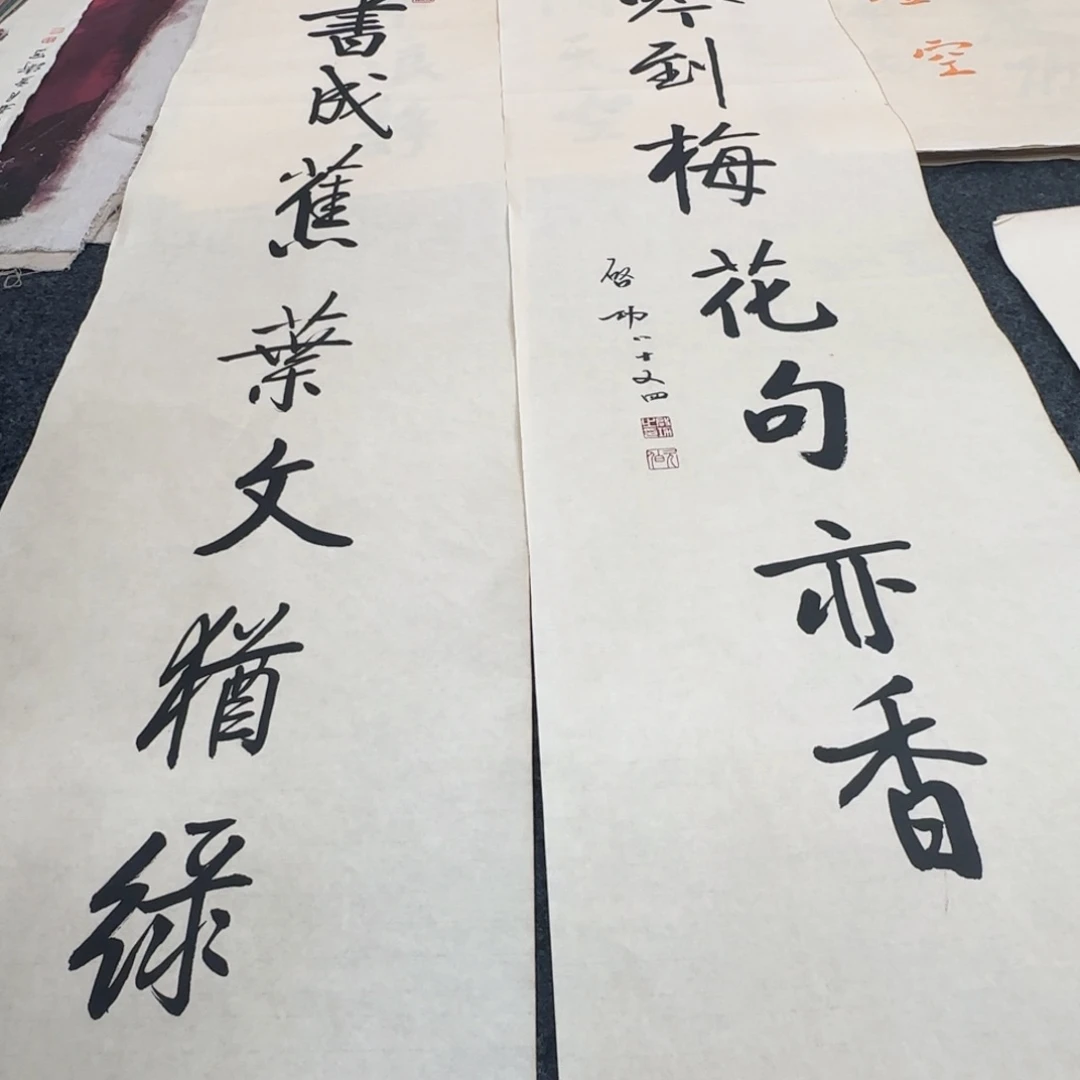 書成蕉葉文猶綠
吟到梅花句亦香
啓功八十又四
空